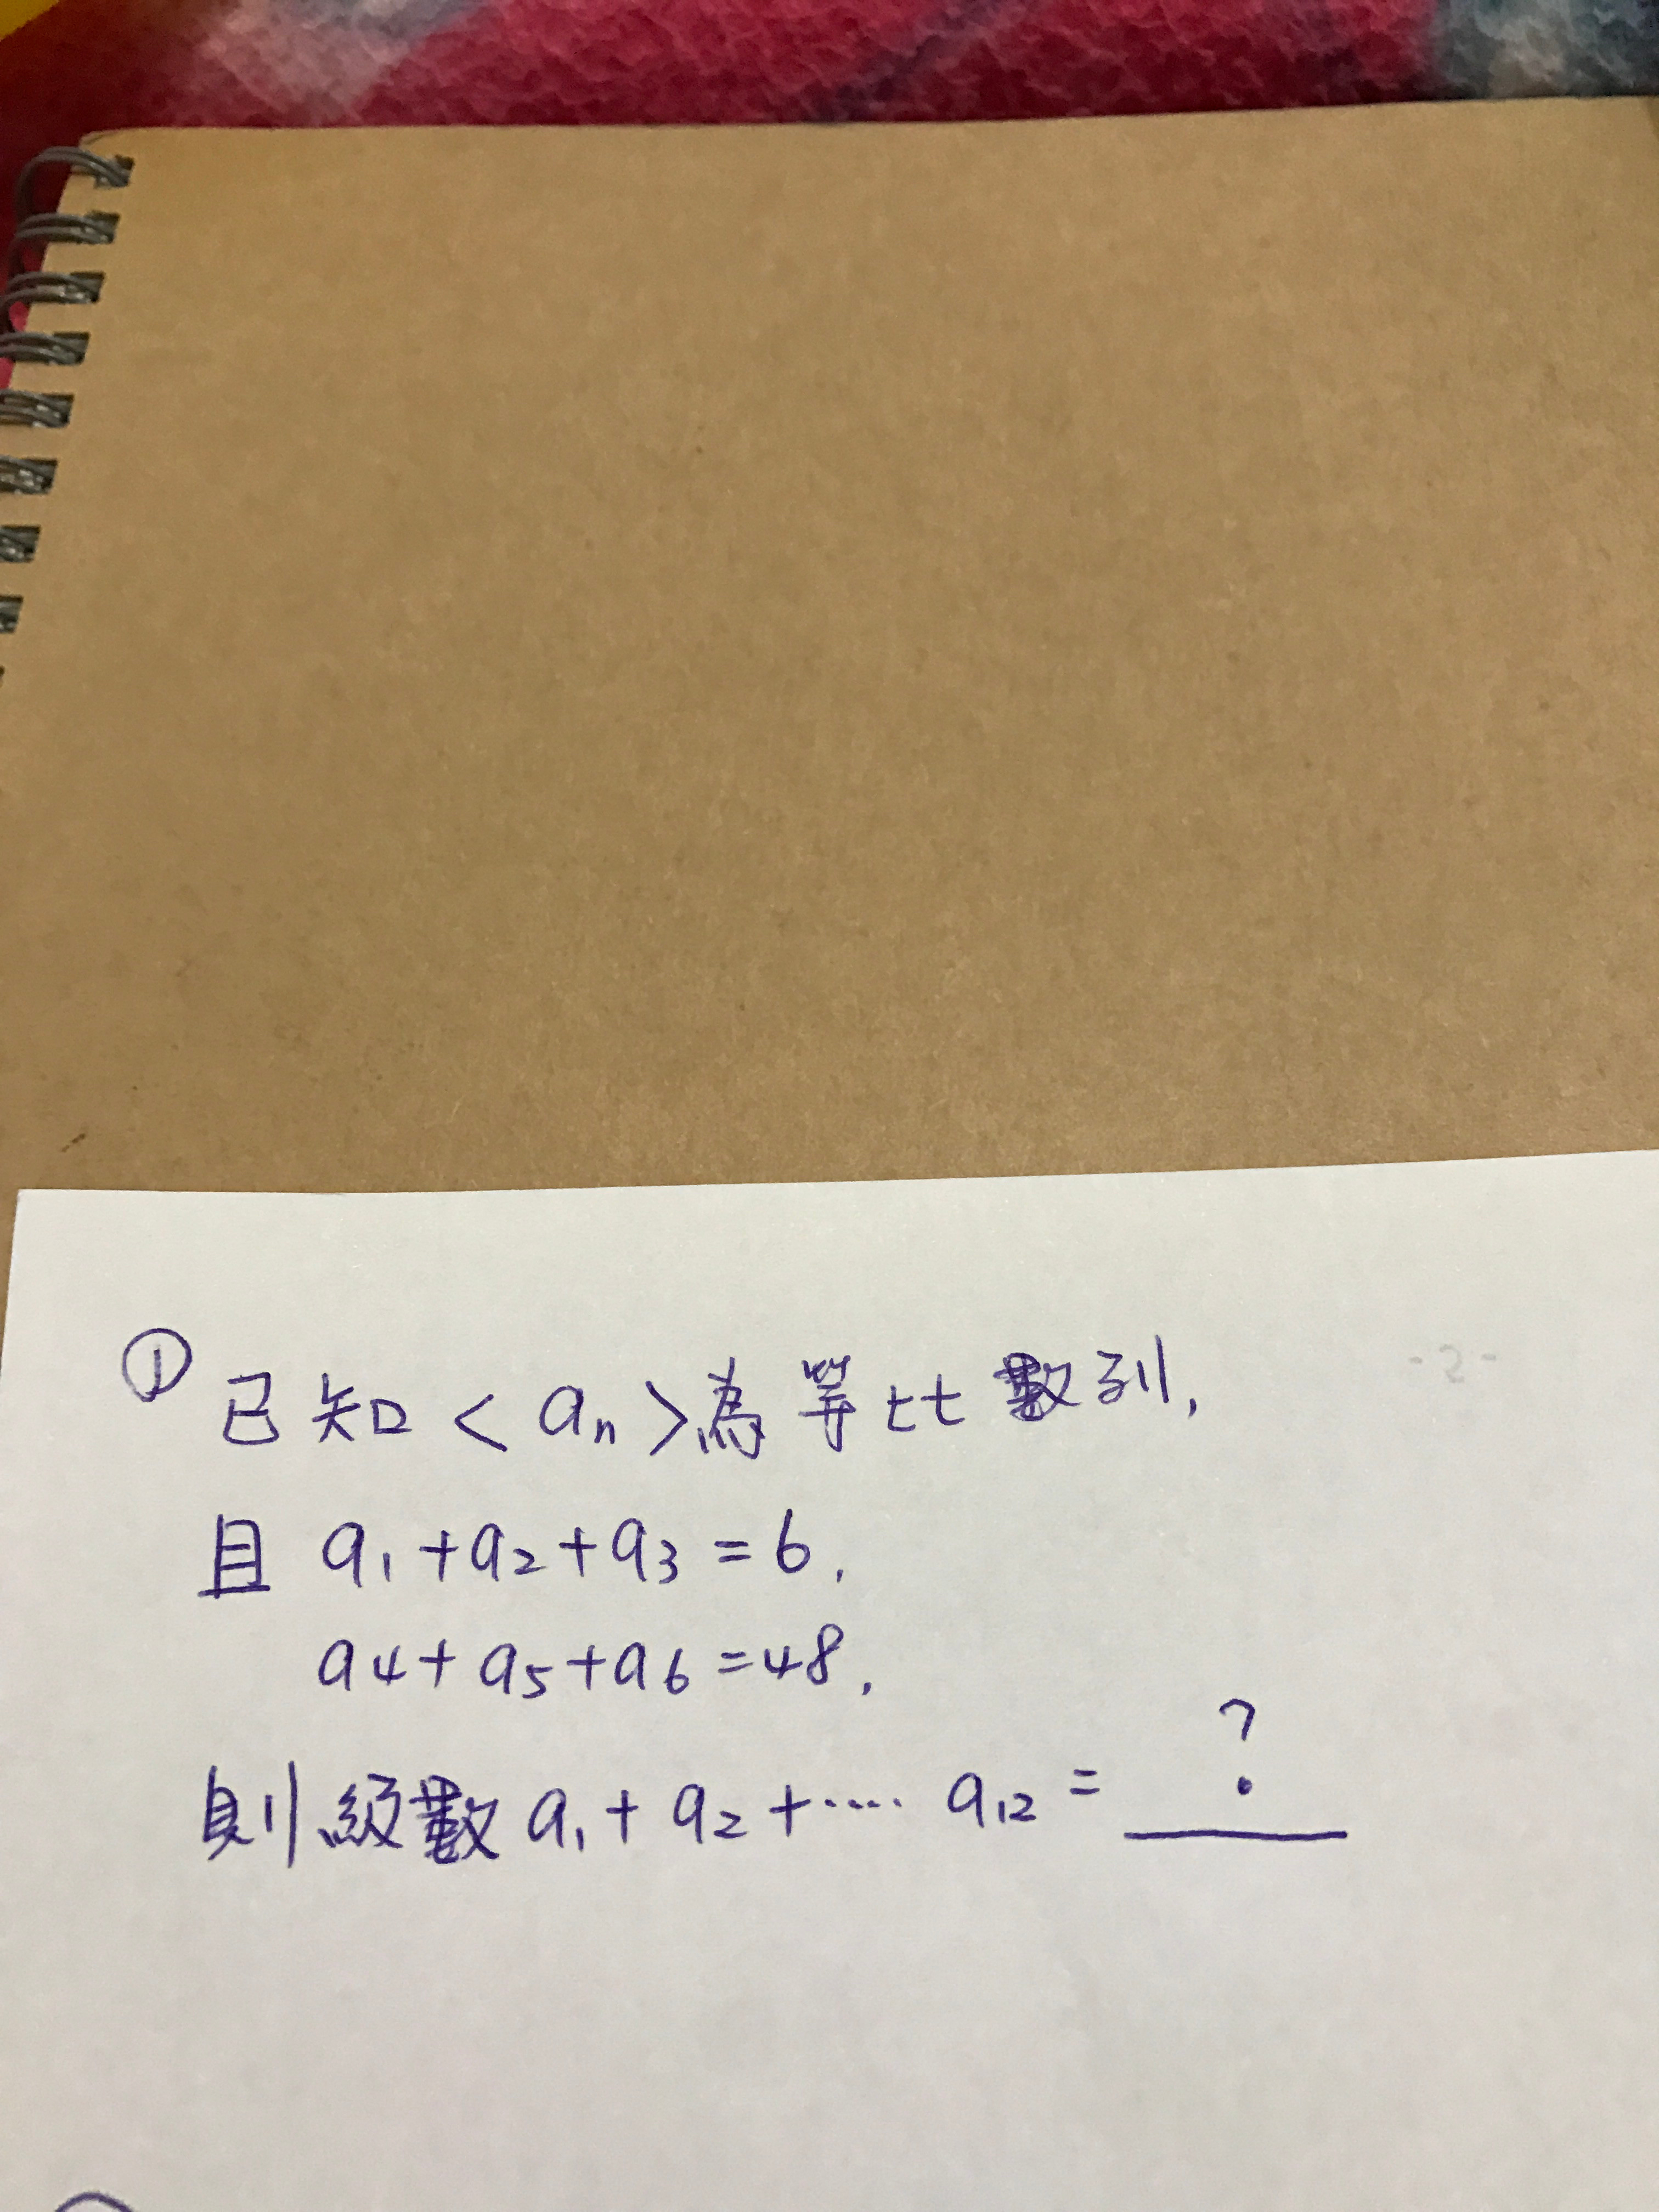 ① 已知<aₙ>為等比數列,
且 a₁+a₂+a₃=6,
a₄+a₅+a₆=48,
則級數 a₁+a₂+····· a₁₂= ?
-2-